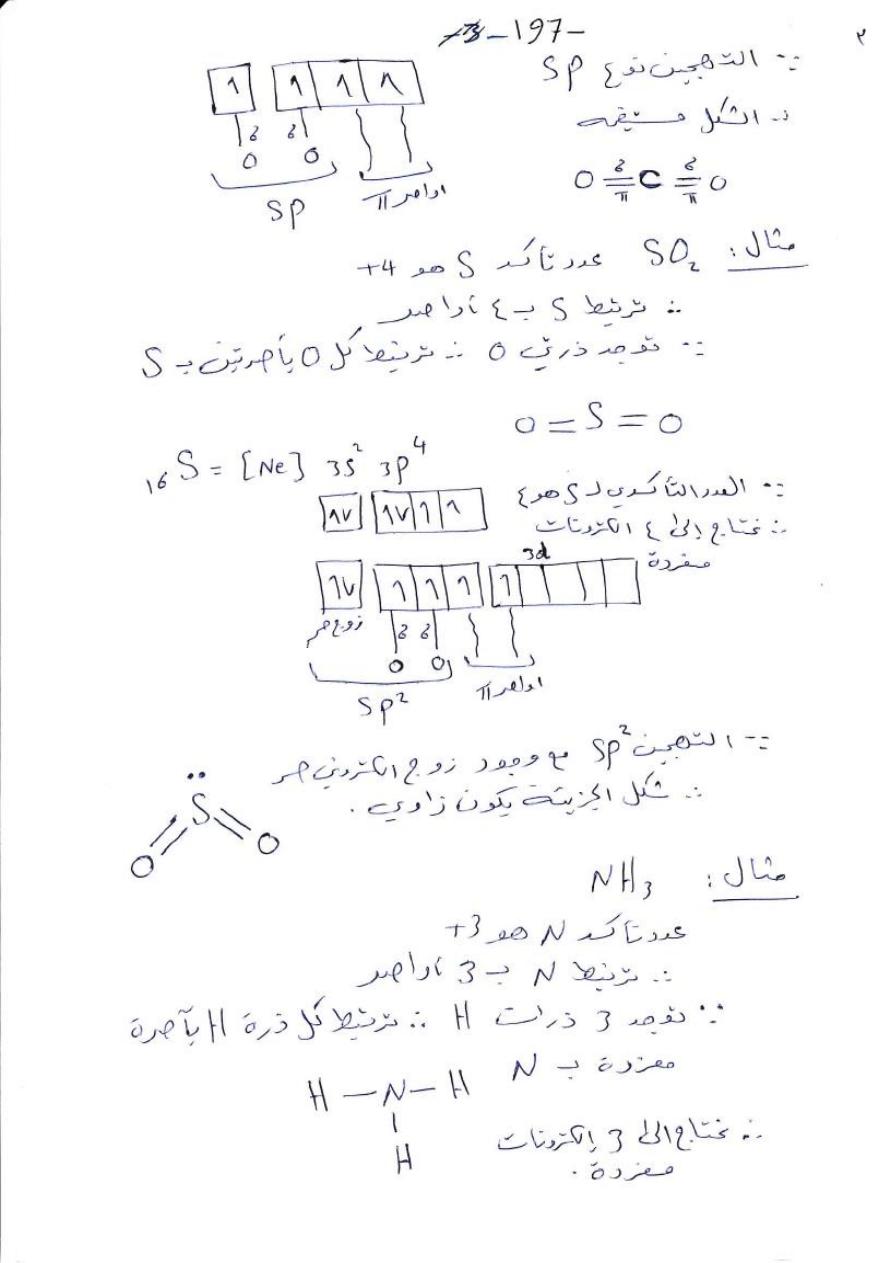 -197-
٢
∵ التهجين نوع SP
∴ الشكل مستقيم
1 1 1 1
6 6
O O
SP
اواصر π
O = C = O
6 6
π π
مثال: SO₂ عدد تأكسد S هو 4+
∴ ترتبط S بـ ٤ أواصر
∵ توجد ذرتي O ∴ ترتبط كل O بأصرتين بـ S
O = S = O
₁₆S = [Ne] 3s² 3p⁴
∵ العدد التأكسدي لـ S هو ٤
∴ نحتاج إلى ٤ الكترونات
مفردة
1v 1v 1 1
3d
1v 1 1 1 1
زوج حر
6 6
O O
اواصر π
SP²
∵ التهجين SP² مع وجود زوج الكتروني حر
∴ شكل الجزيئة يكون زاوي.
S
O O
مثال: NH₃
عدد تأكسد N هو 3+
∴ ترتبط N بـ 3 أواصر
∵ توجد 3 ذرات H ∴ ترتبط كل ذرة H بآصرة
مفردة بـ N
H — N — H
H
∴ نحتاج الى 3 إلكترونات
مفردة.